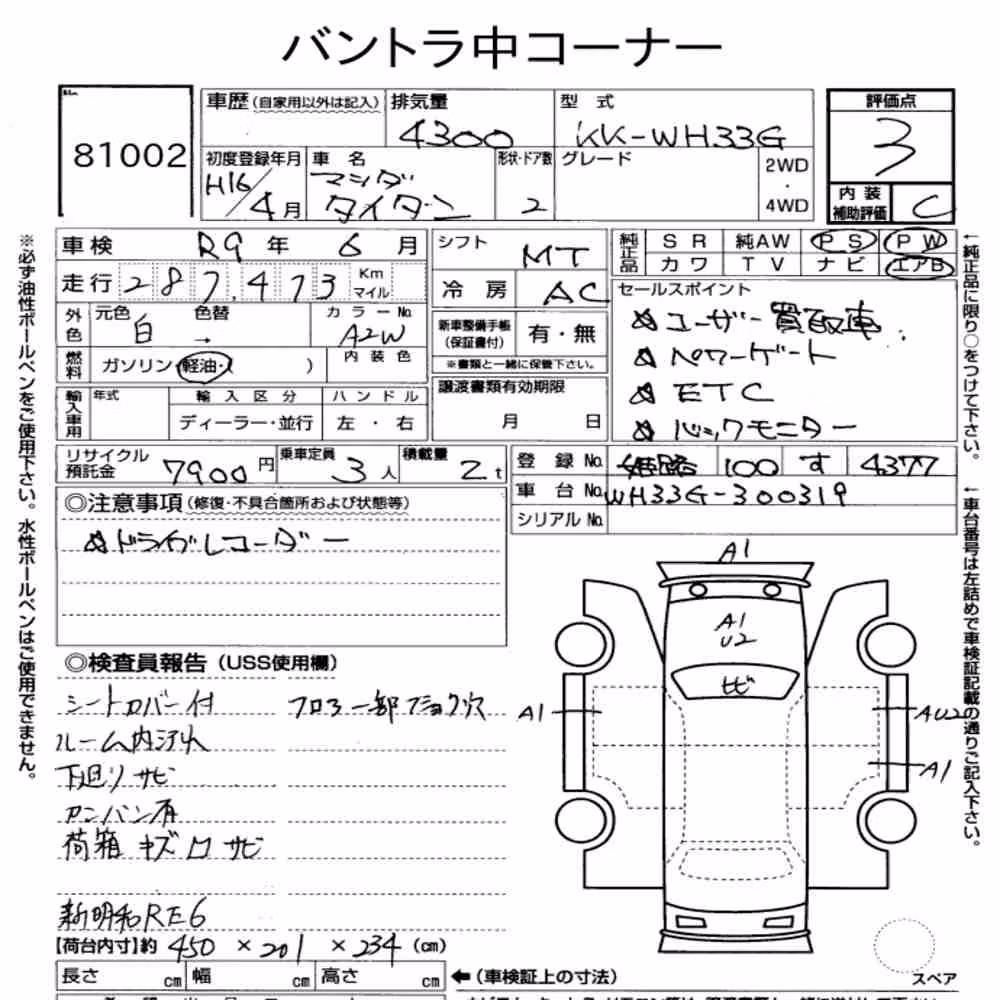 バントラ中コーナー
81002
車歴(自家用以外は記入) 排気量 4300 型式 KK-WH33G
初度登録年月 H16/4月 車名 マツダ タイタン 形状・ドア数 2 グレード 2WD・4WD
評価点 3
内装補助評価 C
車検 R9年6月
走行 287,473 Km マイル
外色 元色 白 色替 → カラーNo. A2W
燃料 ガソリン・軽油・( ) 内装色
輸入車用 年式 輸入区分 ディーラー・並行 ハンドル 左・右
シフト MT
冷房 AC
新車整備手帳(保証書付) 有・無
※書類と一緒に保管下さい。
譲渡書類有効期限 月 日
純正品 SR 純AW PS PW
カワ TV ナビ エアB
セールスポイント
☆ユーザー買取車
☆パワーゲート
☆ETC
☆バックモニター
リサイクル預託金 7900円 乗車定員 3人 積載量 2t
登録No. 姫路 100 す 4377
車台No. WH33G-300319
シリアルNo.
◎注意事項(修復・不具合箇所および状態等)
☆ドライブレコーダー
◎検査員報告(USS使用欄)
シートカバー付
ルーム内汚れ
下廻りサビ
アンバン有
荷箱 キズ凹サビ
フロアー部ブショク穴
新明和RE6
【荷台内寸】約 450 × 201 × 234 (cm)
長さ cm 幅 cm 高さ cm
←(車検証上の寸法)
A1
A1
U2
ヒビ
A1
AU2
A1
スペア
※必ず油性ボールペンをご使用下さい。水性ボールペンはご使用できません。
←純正品に限り○をつけて下さい。
←車台番号は左詰めで車検証記載の通りご記入下さい。